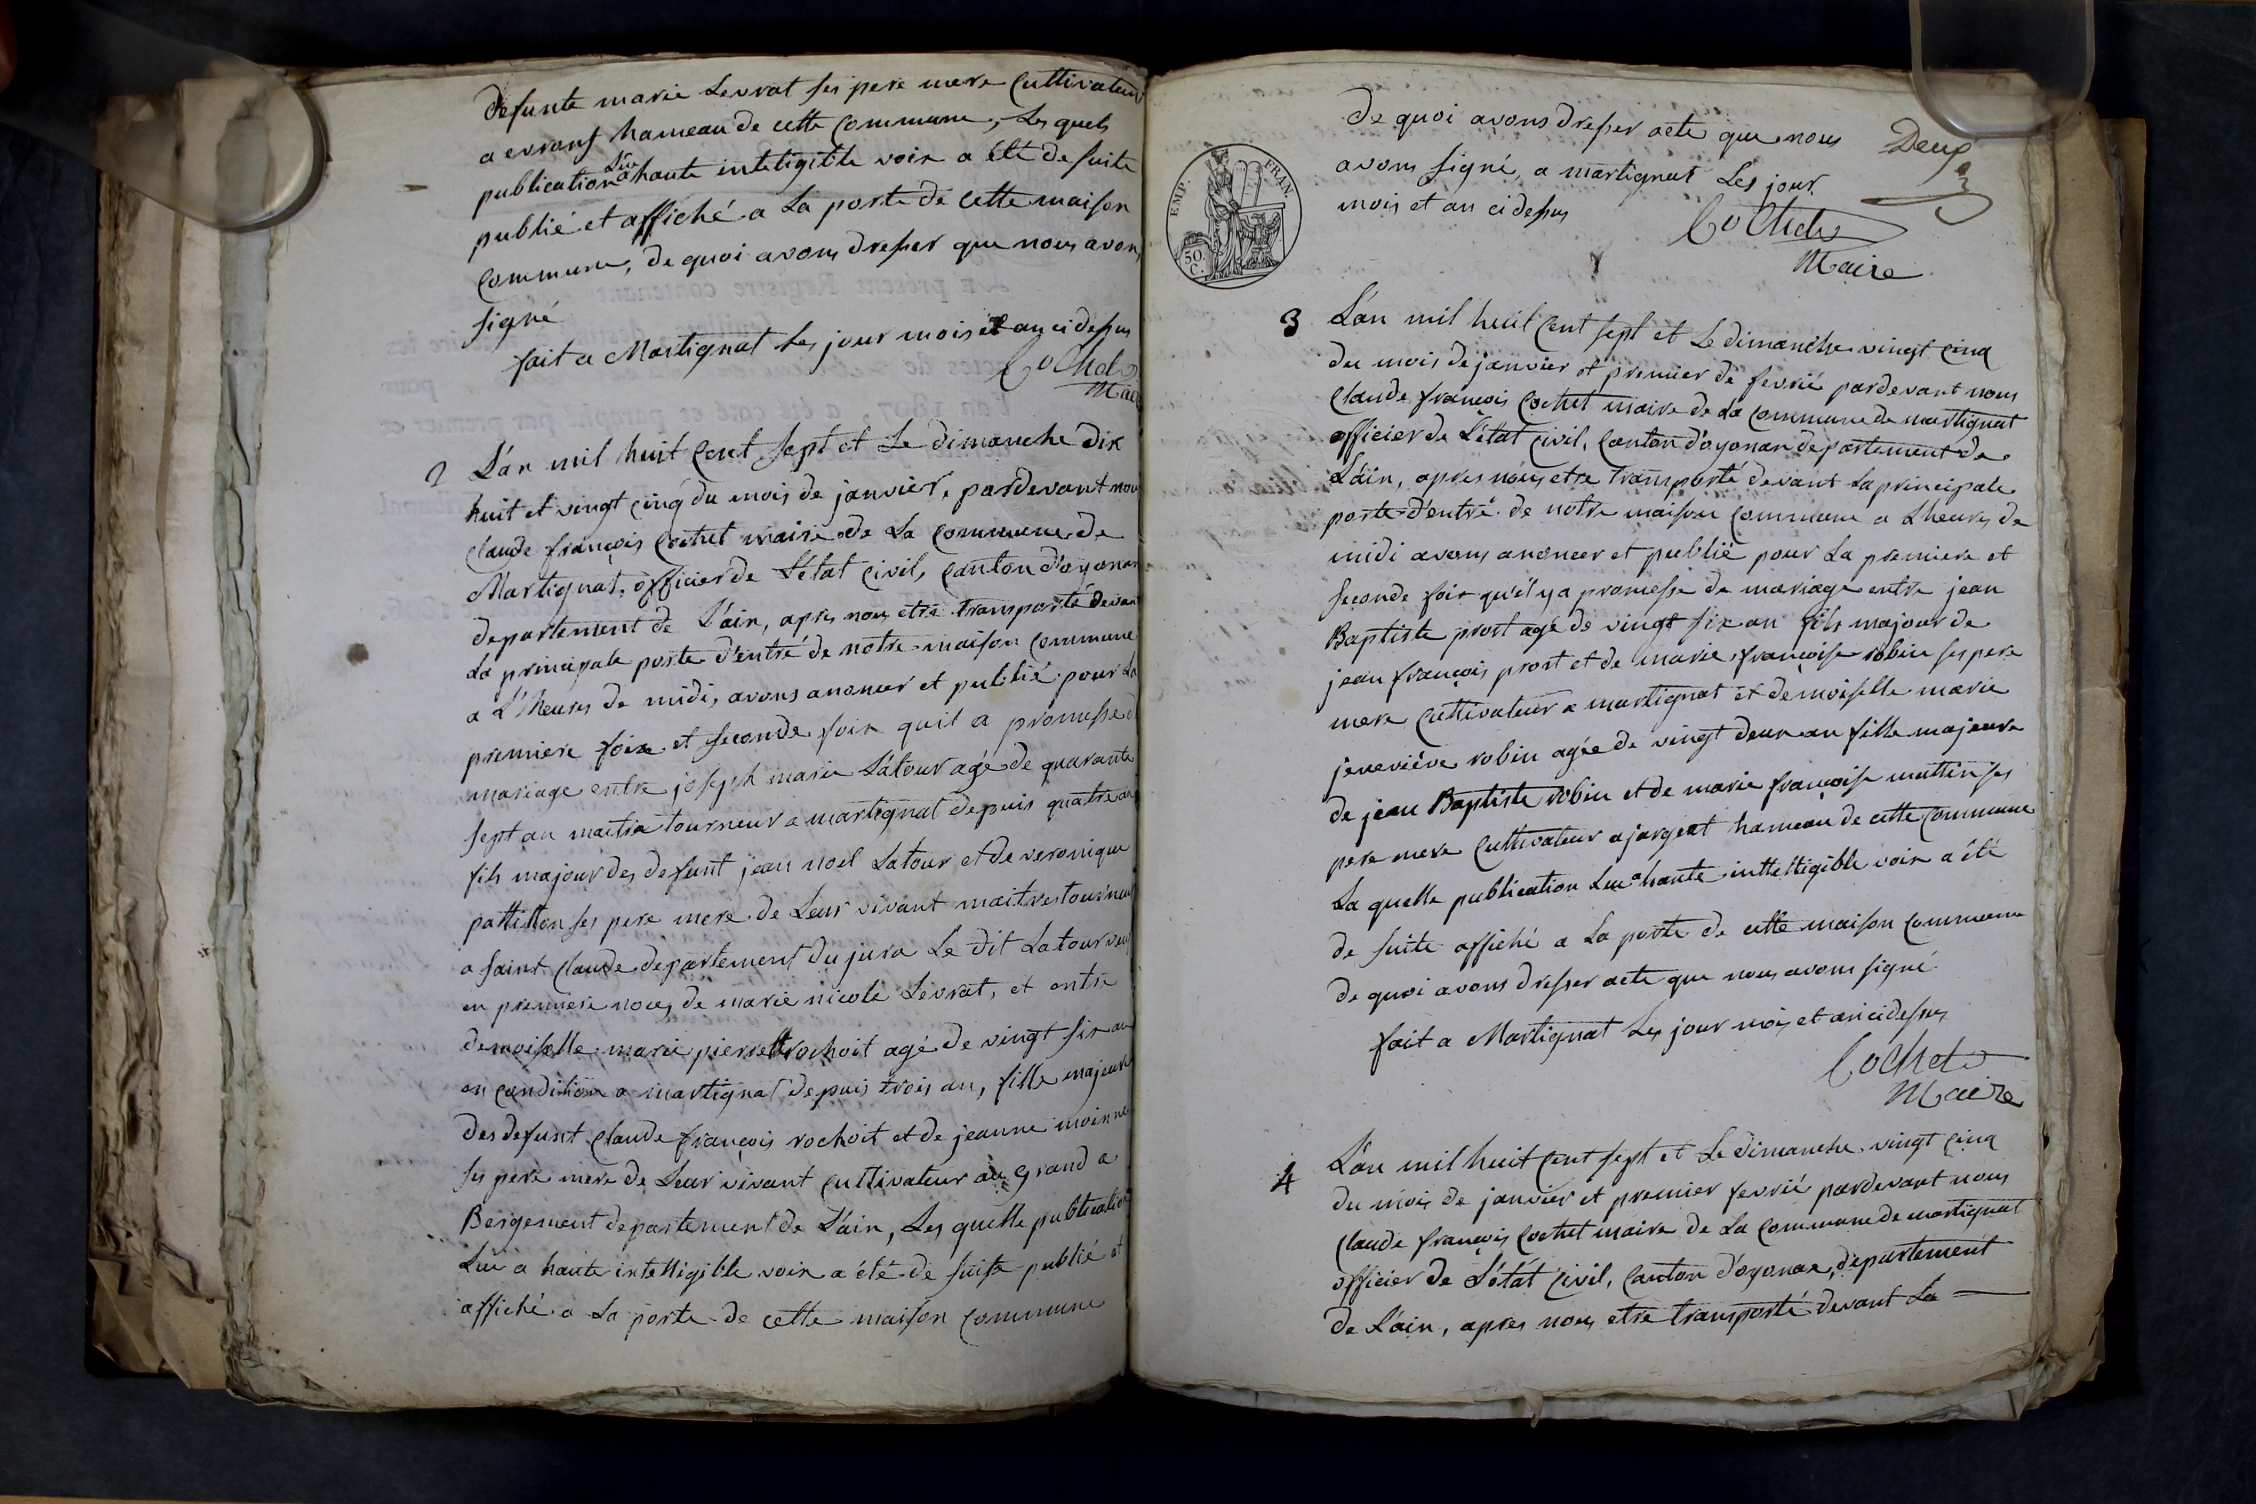 defunte marie Levrat ses pere mere Cultivateur
a evrans hameau de cette Commune, Les quels
publication Lüe a haute inteligitble voix a été de suite
publié et affiché a La porte de Cette maison
Commune, de quoi avons dresser que nous avons
signé
fait a Martignat les jour mois et an ci dessus
Cochet
Maire
2 L'an mil huit Cent sept et Le dimanche dix
huit et vingt cinq du mois de janvier, pardevant nous
Claude françois Cochet maire de La Commune de
Martignat, officier de L'état Civil, Canton d'oyonar
departement de L'ain, apres nous etre transporté devant
La principale porte d'entré de notre maison Commune
a L'heures de midi, avons anoncer et publié pour La
premiere foix et seconde foix quil a promesse de
mariage entre joseph marie Latour agé de quarante
sept an maitre tourneur a martignat depuis quatre an
fils majour des defunt jean noel Latour et de veronique
pattillon ses pere mere de Leur vivant maitres tourneur
a saint Claude departement du jura Le dit Latour veuf
en premiere noces de marie nicole Levrat, et entre
demoiselle marie pierrette rochoit agé de vingt six an
en Condition a martignat depuis trois an, fille majeure
des defunt Claude françois rochoit et de jeanne moinne
ses pere mere de Leur vivant Cultivateur au grand a
Bergement departement de L'ain, Les quelle publication
Lüe a haute intelligible voix a été de suite publié et
affiché a La porte de cette maison Commune
de quoi avons dresser acte que nous
avons signé, a martignat Les jour
mois et an ci dessus
Deux
Cochet
Maire
EMP. FRAN.
50.
C.
3 L'an mil huit Cent sept et Le dimanche vingt Cinq
du mois de janvier et premier de fevrié pardevant nous
Claude françois Cochet maire de La Commune de martignat
officier de L'état Civil, Canton d'oyonar departement de
L'ain, apres nous etre transporté devant La principale
porte d'entré de notre maison Commune a Lheures de
midi avons anoncer et publié pour La premiere et
seconde foix qu'il y a promesse de mariage entre jean
Baptiste prost agé de vingt six an fils majour de
jean françois prost et de marie françoise robin ses pere
mere Cultivateur a martignat et demoiselle marie
jeneviéve robin agée de vingt deux an fille majeure
de jean Baptiste robin et de marie françoise mattin ses
pere mere Cultivateur a jargeat hameau de cette Commune
La quelle publication Lue a haute intteltigible voix a été
de suite affiché a La porte de cette maison Commune
de quoi avons dresser acte que nous avons signé
fait a Martignat Les jour mois et an ci dessus
Cochet
Maire
4 L'an mil huit Cent sept et Le dimanche vingt Cinq
du mois de janvier et premier fevrié pardevant nous
Claude françois Cochet maire de La Commune de martignat
officier de L'état Civil, Canton d'oyonax, departement
de L'ain, apres nous etre transporté devant La